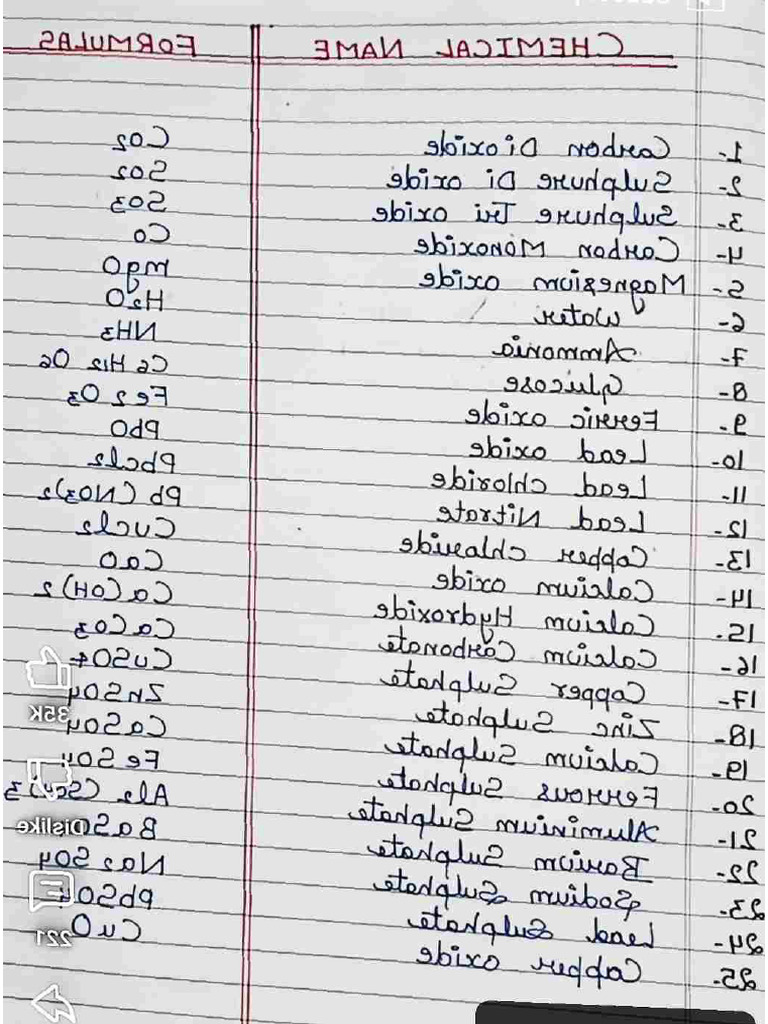 CHEMICAL NAME FORMULAS
1- Carbon Di oxide CO2
2- Sulphure Di oxide SO2
3- Sulphure Tri oxide SO3
4- Carbon Monoxide Co
5- Magnesium oxide mgO
6- Water H2O
7- Ammonia NH3
8- Glucose C6 H12 O6
9- Ferric oxide Fe2 O3
10- Lead oxide PbO
11- Lead chloride Pbcl2
12- Lead Nitrate Pb (NO3)2
13- Copper chlauide Cucl2
14- Calcium oxide CaO
15- Calcium Hydroxide Ca (OH) 2
16- Calcium Carbonate Ca CO3
17- Copper Sulphate CuSO4
18- Zinc Sulphate ZnSO4
19- Calcium Sulphate CaSO4
20- Ferrous Sulphate Fe SO4
21- Aluminium Sulphate Al2
22- Barium Sulphate BaSO
23- Sodium Sulphate Na2 SO4
24- Lead Sulphate PbSO4
25- Copper oxide CuO
35K
Dislike
221